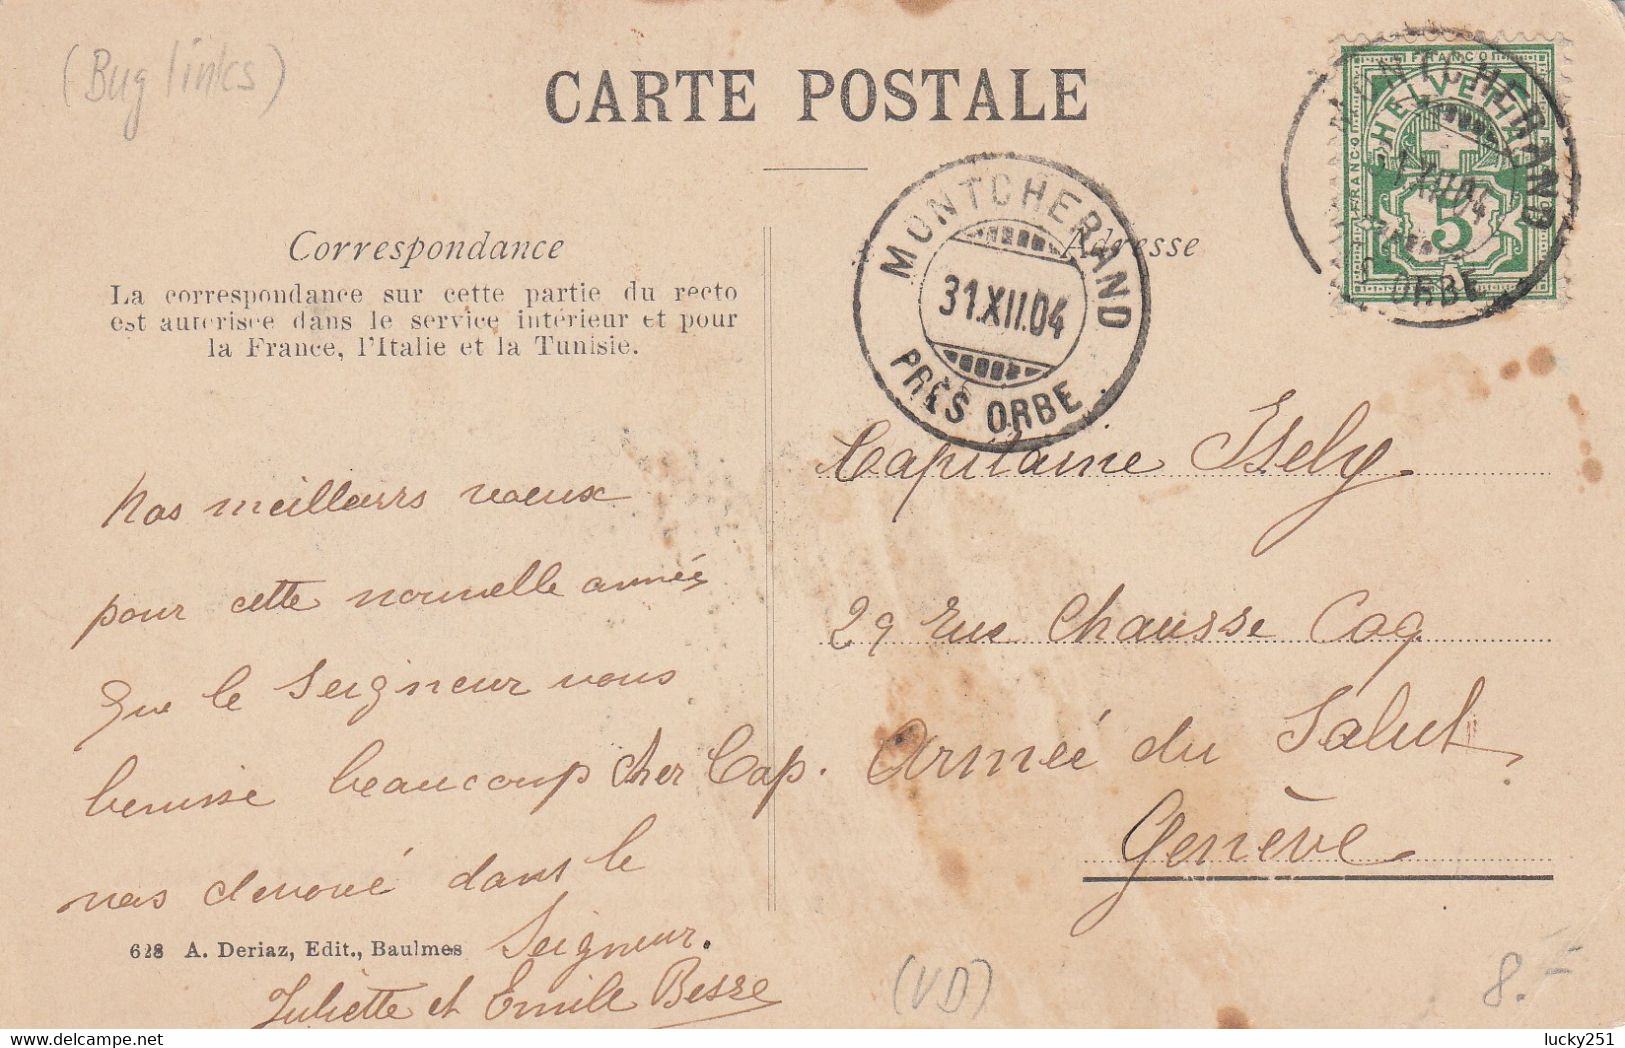 (Bug links)
CARTE POSTALE
FRANCO
HELVETIA
FRANCO
5
MONTCHERAND
31.XII.04
ORBE
MONTCHERAND
31.XII.04
PRÈS ORBE
Correspondance
Adresse
La correspondance sur cette partie du recto
est autorisée dans le service intérieur et pour
la France, l'Italie et la Tunisie.
Nos meilleurs voeux
pour cette nouvelle année
Que le Seigneur vous
benisse beaucoup cher Cap.
vos devoué dans le
Seigneur.
Juliette et Emile Besse
Capitaine Isely
29 rue Chausse Coq
Armée du Salut
Genève
628 A. Deriaz, Edit., Baulmes
(VD)
8.-
delcampe.net
lucky251